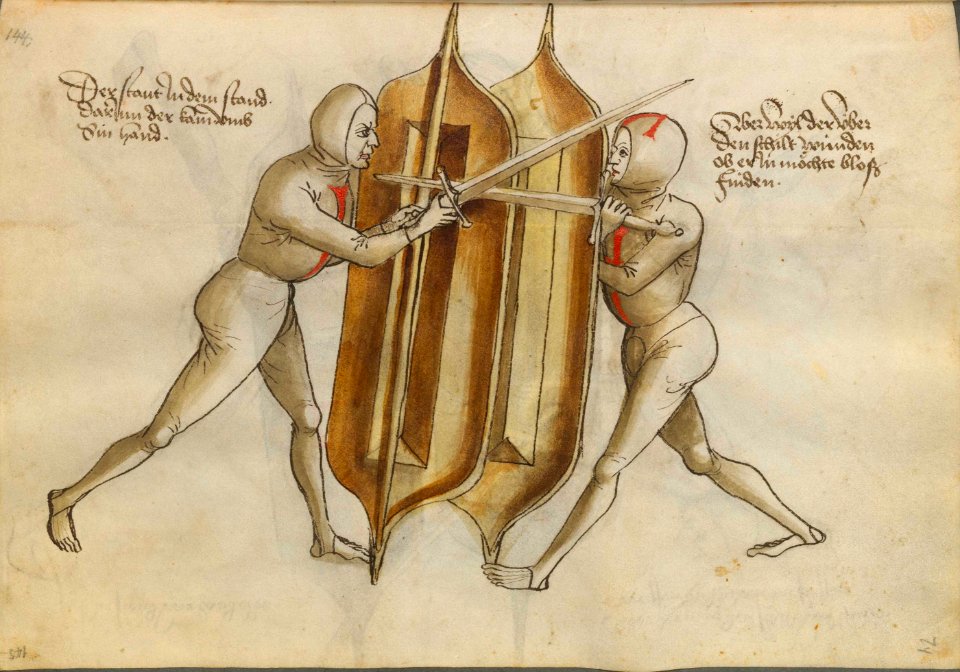 144
Der staut In dem stand
dar Inn der kam vmb
Sin hand.
Aber wyl der über
den schilt winden
ob er In möchte bloß
finden.
143
71